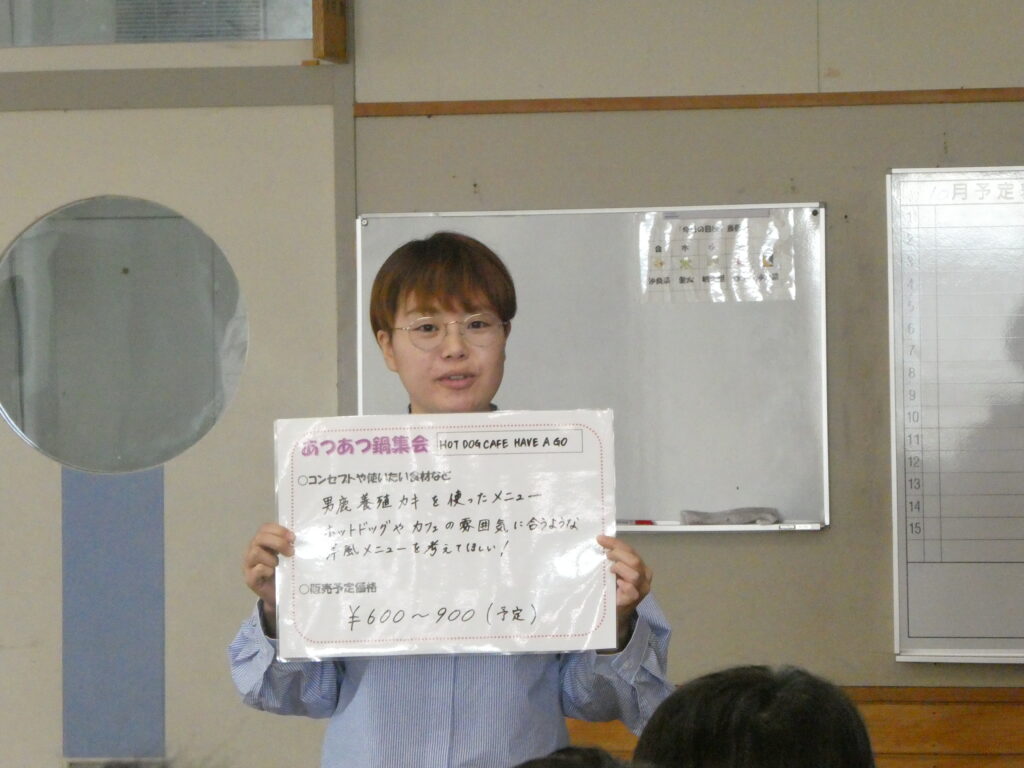 あつあつ鍋集会 HOT DOG CAFE HAVE A GO
○コンセプトや使いたい食材など
男鹿養殖カキを使ったメニュー
ホットドッグやカフェの雰囲気に合うような
洋風メニューを考えてほしい!
○販売予定価格
¥600～900(予定)
10月予定
6
7
8
9
10
11
12
13
14
15